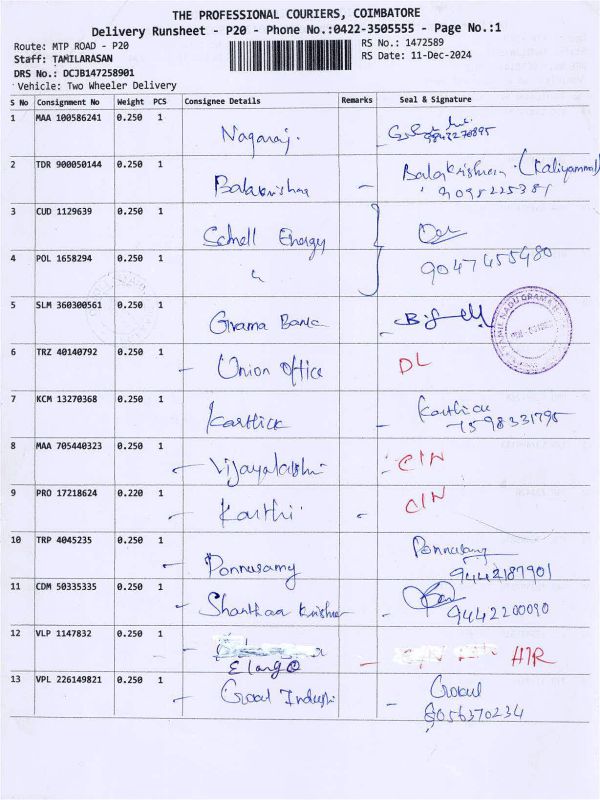 THE PROFESSIONAL COURIERS, COIMBATORE
Delivery Runsheet - P20 - Phone No.:0422-3505555 - Page No.:1
Route: MTP ROAD - P20 RS No.: 1472589
Staff: TAMILARASAN RS Date: 11-Dec-2024
DRS No.: DCJB147258901
Vehicle: Two Wheeler Delivery
S No Consignment No Weight PCS Consignee Details Remarks Seal & Signature
1 MAA 100586241 0.250 1 Nagaraj.
2 TDR 900050144 0.250 1 Balakrishna - Balakrishnan. (Kaliyammal)
9095225381
3 CUD 1129639 0.250 1 Schnell Energy
4 POL 1658294 0.250 1 " 9047455980
5 SLM 360300561 0.250 1 Grama Bank
TAMIL NADU GRAMA
6 TRZ 40140792 0.250 1 - Union Office DL
7 KCM 13270368 0.250 1 Karthick - Karthick
8 MAA 705440323 0.250 1 - Vijayalakshmi - CIN
9 PRO 17218624 0.220 1 - Karthi - CIN
10 TRP 4045235 0.250 1 - Ponnusamy Ponnusamy
9442187901
11 CDM 50335335 0.250 1 - Krishnan
9442200090
12 VLP 1147832 0.250 1 - Elango - HIR
13 VPL 226149821 0.250 1 - Gokul
8056370234